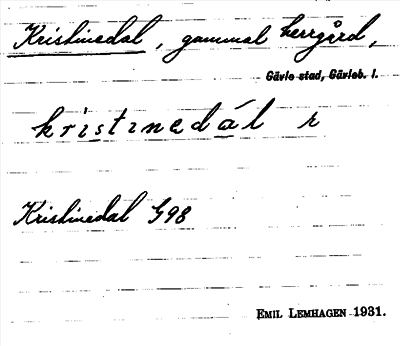 Kristinedal, gammal herrgård,
Gävle stad, Gävleb. l.
kristinedál r
Kristinedal G98
EMIL LEMHAGEN 1931.